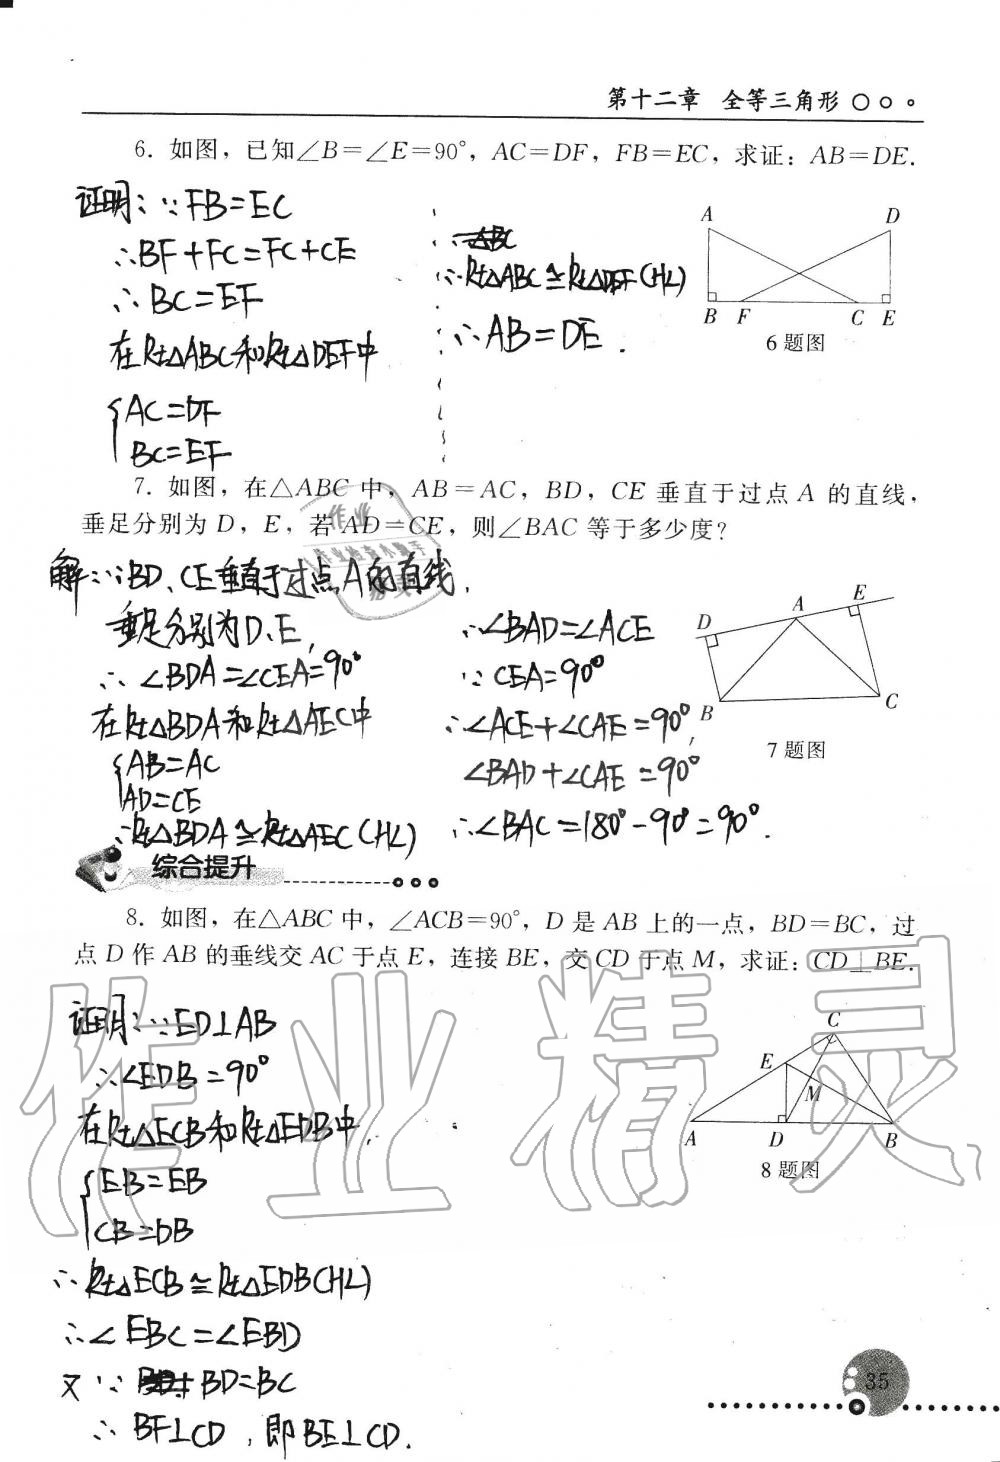 第十二章 全等三角形
6. 如图，已知∠B=∠E=90°，AC=DF，FB=EC，求证：AB=DE.
证明：∵FB=EC
∴BF+FC=FC+CE
∴BC=EF
在Rt△ABC和Rt△DEF中
{AC=DF
BC=EF
∴Rt△ABC≌Rt△DEF(HL)
∴AB=DE.
A D
B F C E
6题图
7. 如图，在△ABC中，AB=AC，BD，CE垂直于过点A的直线，
垂足分别为D，E，若AD=CE，则∠BAC等于多少度？
解：∵BD、CE垂直于过点A的直线，
垂足分别为D、E，
∴∠BDA=∠CEA=90°
在Rt△BDA和Rt△AEC中
{AB=AC
AD=CE
∴Rt△BDA≌Rt△AEC(HL)
∴∠BAD=∠ACE
∵CEA=90°
∴∠ACE+∠CAE=90°，
∠BAD+∠CAE=90°
∴∠BAC=180°-90°=90°.
D A E
B C
7题图
综合提升
8. 如图，在△ABC中，∠ACB=90°，D是AB上的一点，BD=BC，过
点D作AB的垂线交AC于点E，连接BE，交CD于点M，求证：CD⊥BE.
证明：∵ED⊥AB
∴∠EDB=90°
在Rt△ECB和Rt△EDB中，
{EB=EB
CB=DB
∴Rt△ECB≌Rt△EDB(HL)
∴∠EBC=∠EBD
又∵BD=BC
∴BF⊥CD，即BE⊥CD.
C
E
M
A D B
8题图
35
作业精灵